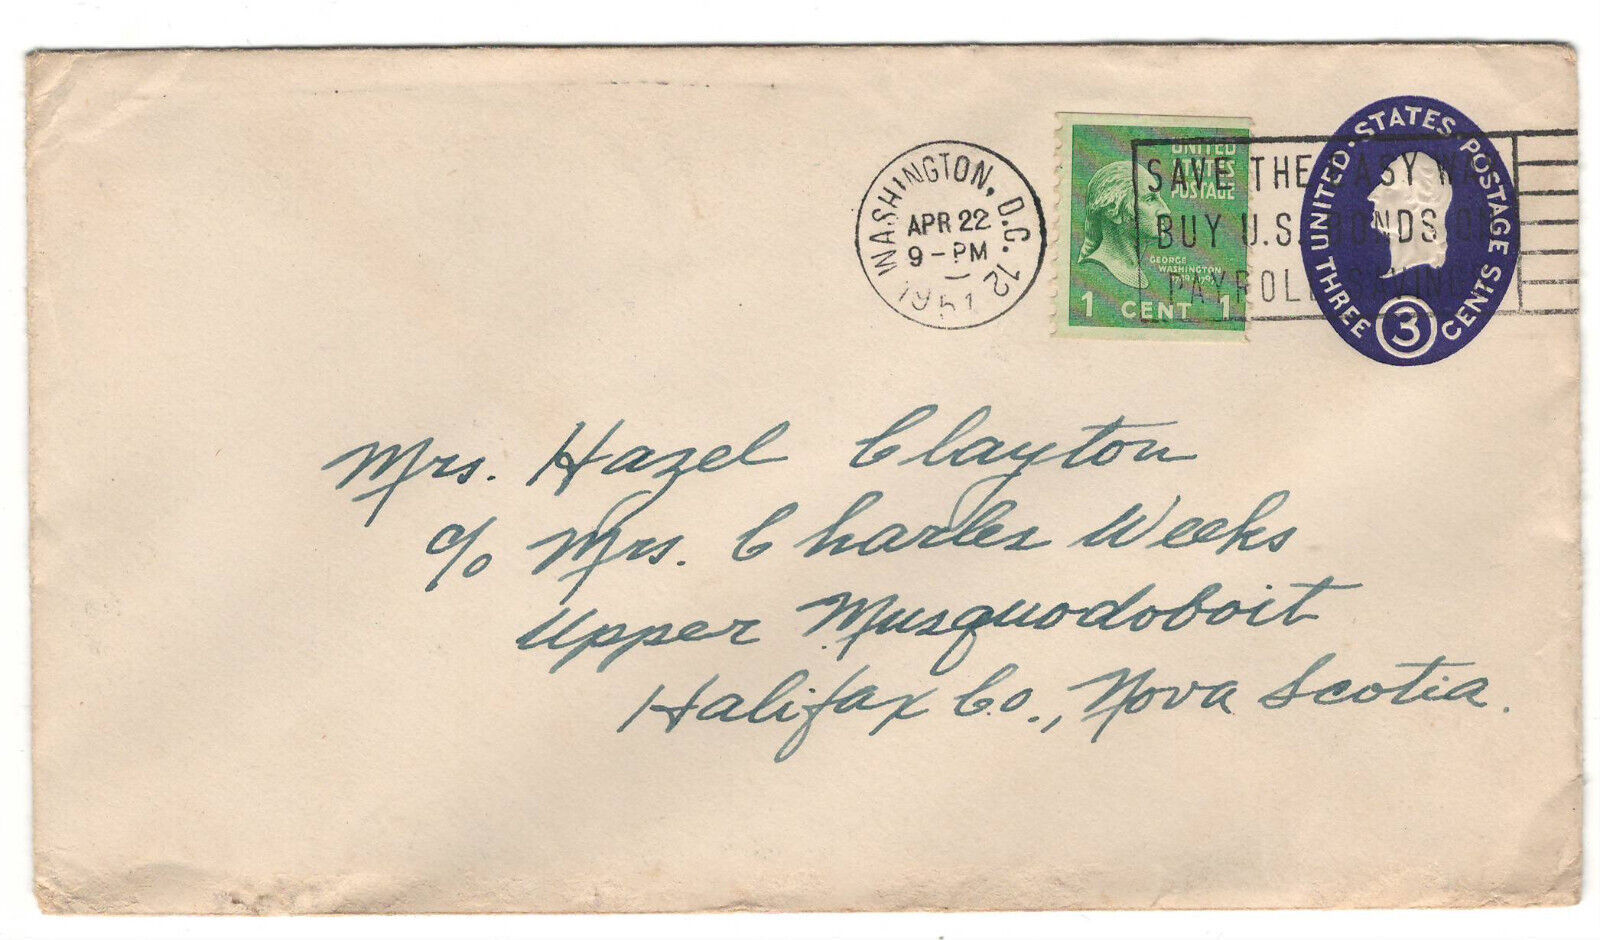 WASHINGTON, D.C. 12
APR 22
9-PM
1951
UNITED
STATES
POSTAGE
GEORGE
WASHINGTON
1 CENT 1
SAVE THE EASY WAY
BUY U.S. BONDS ON
PAYROLL SAVINGS
UNITED·STATES·POSTAGE
THREE 3 CENTS
Mrs. Hazel Clayton
c/o Mrs. Charles Weeks
Upper Musquodoboit
Halifax Co., Nova Scotia.